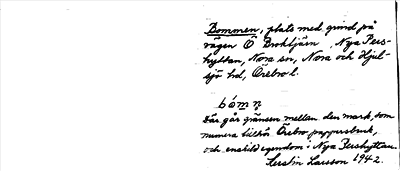 Bommen, plats med grind på
vägen Ö Broktjärn, Nya Pers-
hyttan, Nora sn, Nora och Hjul-
sjö hd, Örebro l.
bómn̥
Där går gränsen mellan den mark, som
numera tillhör Örebro pappersbruk,
och enskild egendom i Nya Pershyttan.
Kerstin Larsson 1942.